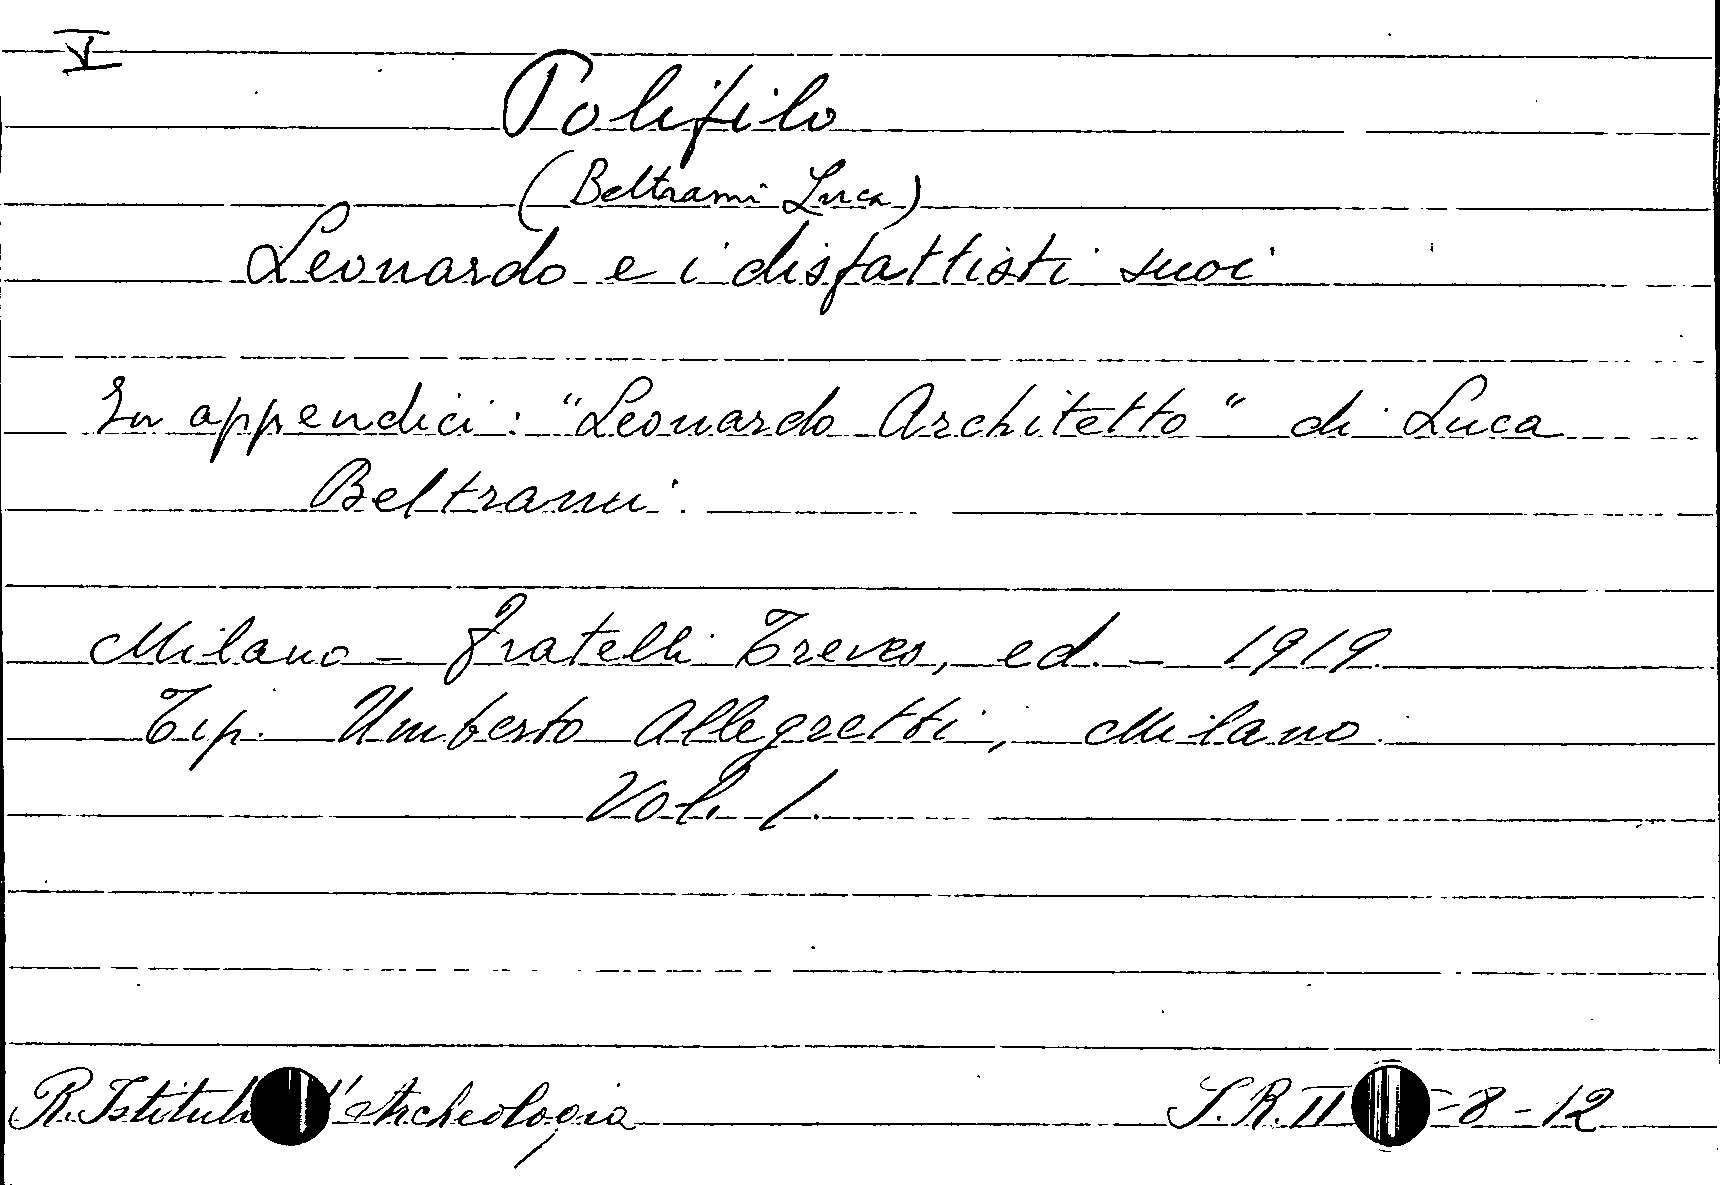 V
Polifilo
(Beltrami Luca)
Leonardo e i disfattisti suoi
In appendici: "Leonardo Architetto" di Luca
Beltrami.
Milano - Fratelli Treves, ed. - 1919.
Tip. Umberto Allegretti, Milano.
Vol. 1.
R. Istituto d'Archeologia
S.R. II -8-12